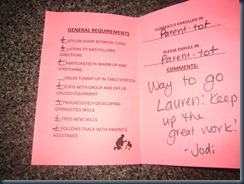 GENERAL REQUIREMENTS
+ SITS ON SHAPE BETWEEN TURNS
+ LISTENS TO AND FOLLOWS
DIRECTIONS
+ PARTICIPATES IN WARM-UP AND
STRETCHING
HOLDS TUMMY UP IN TABLE STRETCH
+ STAYS WITH GROUP AND OFF OF
UNUSED EQUIPMENT
+ PROGRESSIVELY DEVELOPING
GYMNASTICS SKILLS
+ TRIES NEW SKILLS
+ FOLLOWS TRACK WITH PARENT'S
ASSISTANCE
CURRENTLY ENROLLED IN
Parent-tot
PLEASE ENROLL IN
Parent-tot
COMMENTS:
Way to go
Lauren! Keep
up the
great work!
- Jodi